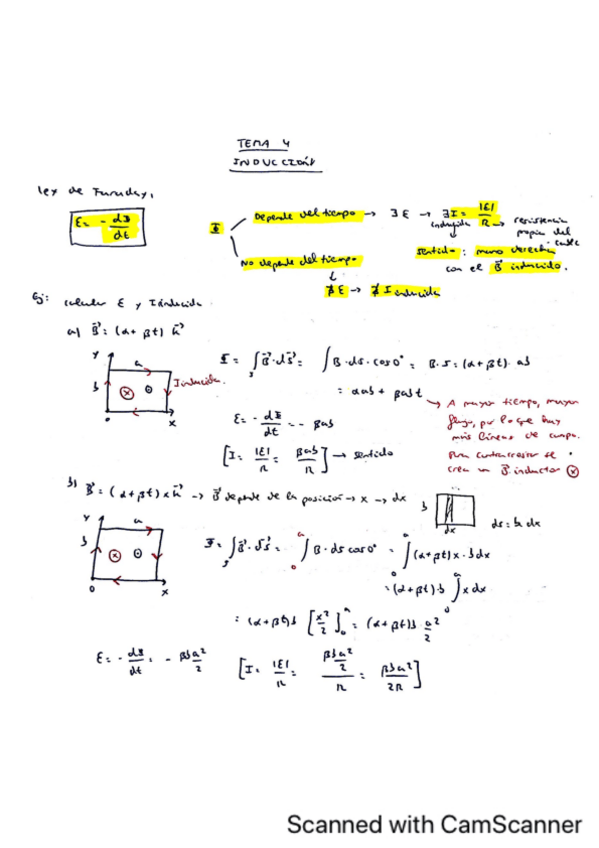 TEMA 4
INDUCCIÓN
Ley de Faraday,
ε = - dΦ/dt
Φ
Depende del tiempo → ∃ ε → ∃ I = |ε|/R → resistencia propia del cable
inducida
sentido: mano derecha
con el B⃗ inducido.
No depende del tiempo
↓
∄ ε → ∄ I inducida
Ej: calcular ε y I inducida.
a) B⃗ = (α + βt) k⃗
y
a
b
I inducida.
0
x
Φ = ∫s B⃗·ds⃗ = ∫ B·ds·cos0° = B·s = (α + βt)·ab
= αab + βabt
→ A mayor tiempo, mayor
flujo, por lo que hay
más líneas de campo.
Para contrarrestar se
crea un B⃗ inductor ⊗
ε = - dΦ/dt = - βab
[I = |ε|/R = βab/R] → sentido
b) B⃗ = (α + βt) x k⃗ → B⃗ depende de la posición → x → dx
b
dx
ds = b dx
y
a
b
0
x
Φ = ∫s B⃗·ds⃗ = ∫₀ᵃ B·ds cos0° = ∫₀ᵃ (α + βt) x·b dx
= (α + βt)·b ∫₀ᵃ x dx
= (α + βt) b [x²/2]₀ᵃ = (α + βt) b·a²/2
ε = - dΦ/dt = - βb a²/2
[I = |ε|/R = (βb a²/2)/R = βba²/2R]
Scanned with CamScanner